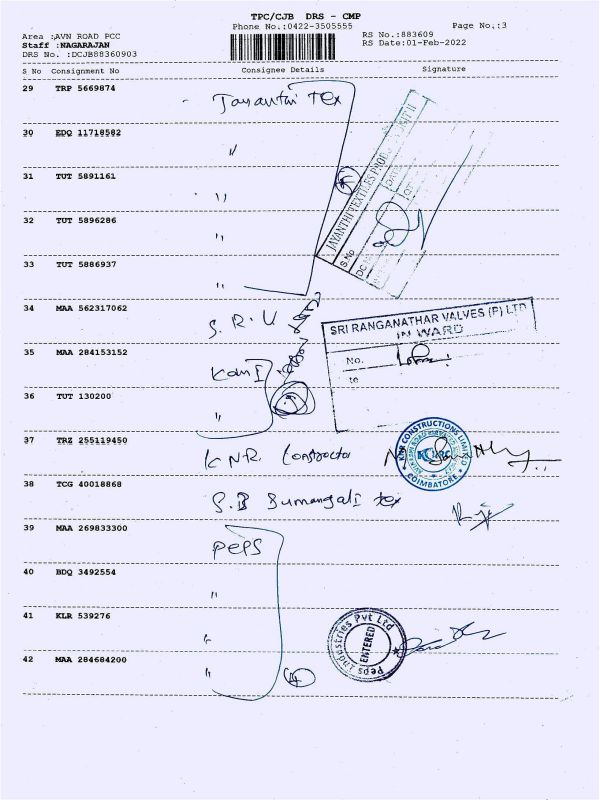 TPC/CJB DRS - CMP
Phone No.:0422-3505555
Page No.:3
Area :AVN ROAD PCC
RS No.:883609
Staff :NAGARAJAN
RS Date:01-Feb-2022
DRS No. :DCJB88360903
S No Consignment No Consignee Details Signature
29 TRP 5669874 Jayanthi Tex
30 EDQ 11718582 "
31 TUT 5891161 "
32 TUT 5896286 "
33 TUT 5886937 "
JAYANTHI TEXTILES
S.No
34 MAA 562317062 S.R.U
SRI RANGANATHAR VALVES (P) LTD
IN WARD
No.
to
35 MAA 284153152
36 TUT 130200 "
37 TRZ 255119450 KNR Constructo
KNR CONSTRUCTIONS LIMITED
COIMBATORE
38 TCG 40018868 S.B Sumangali tex
39 MAA 269833300 PePS
40 BDQ 3492554 "
41 KLR 539276 "
Peps Industries Pvt Ltd
ENTERED
42 MAA 284684200 "
4